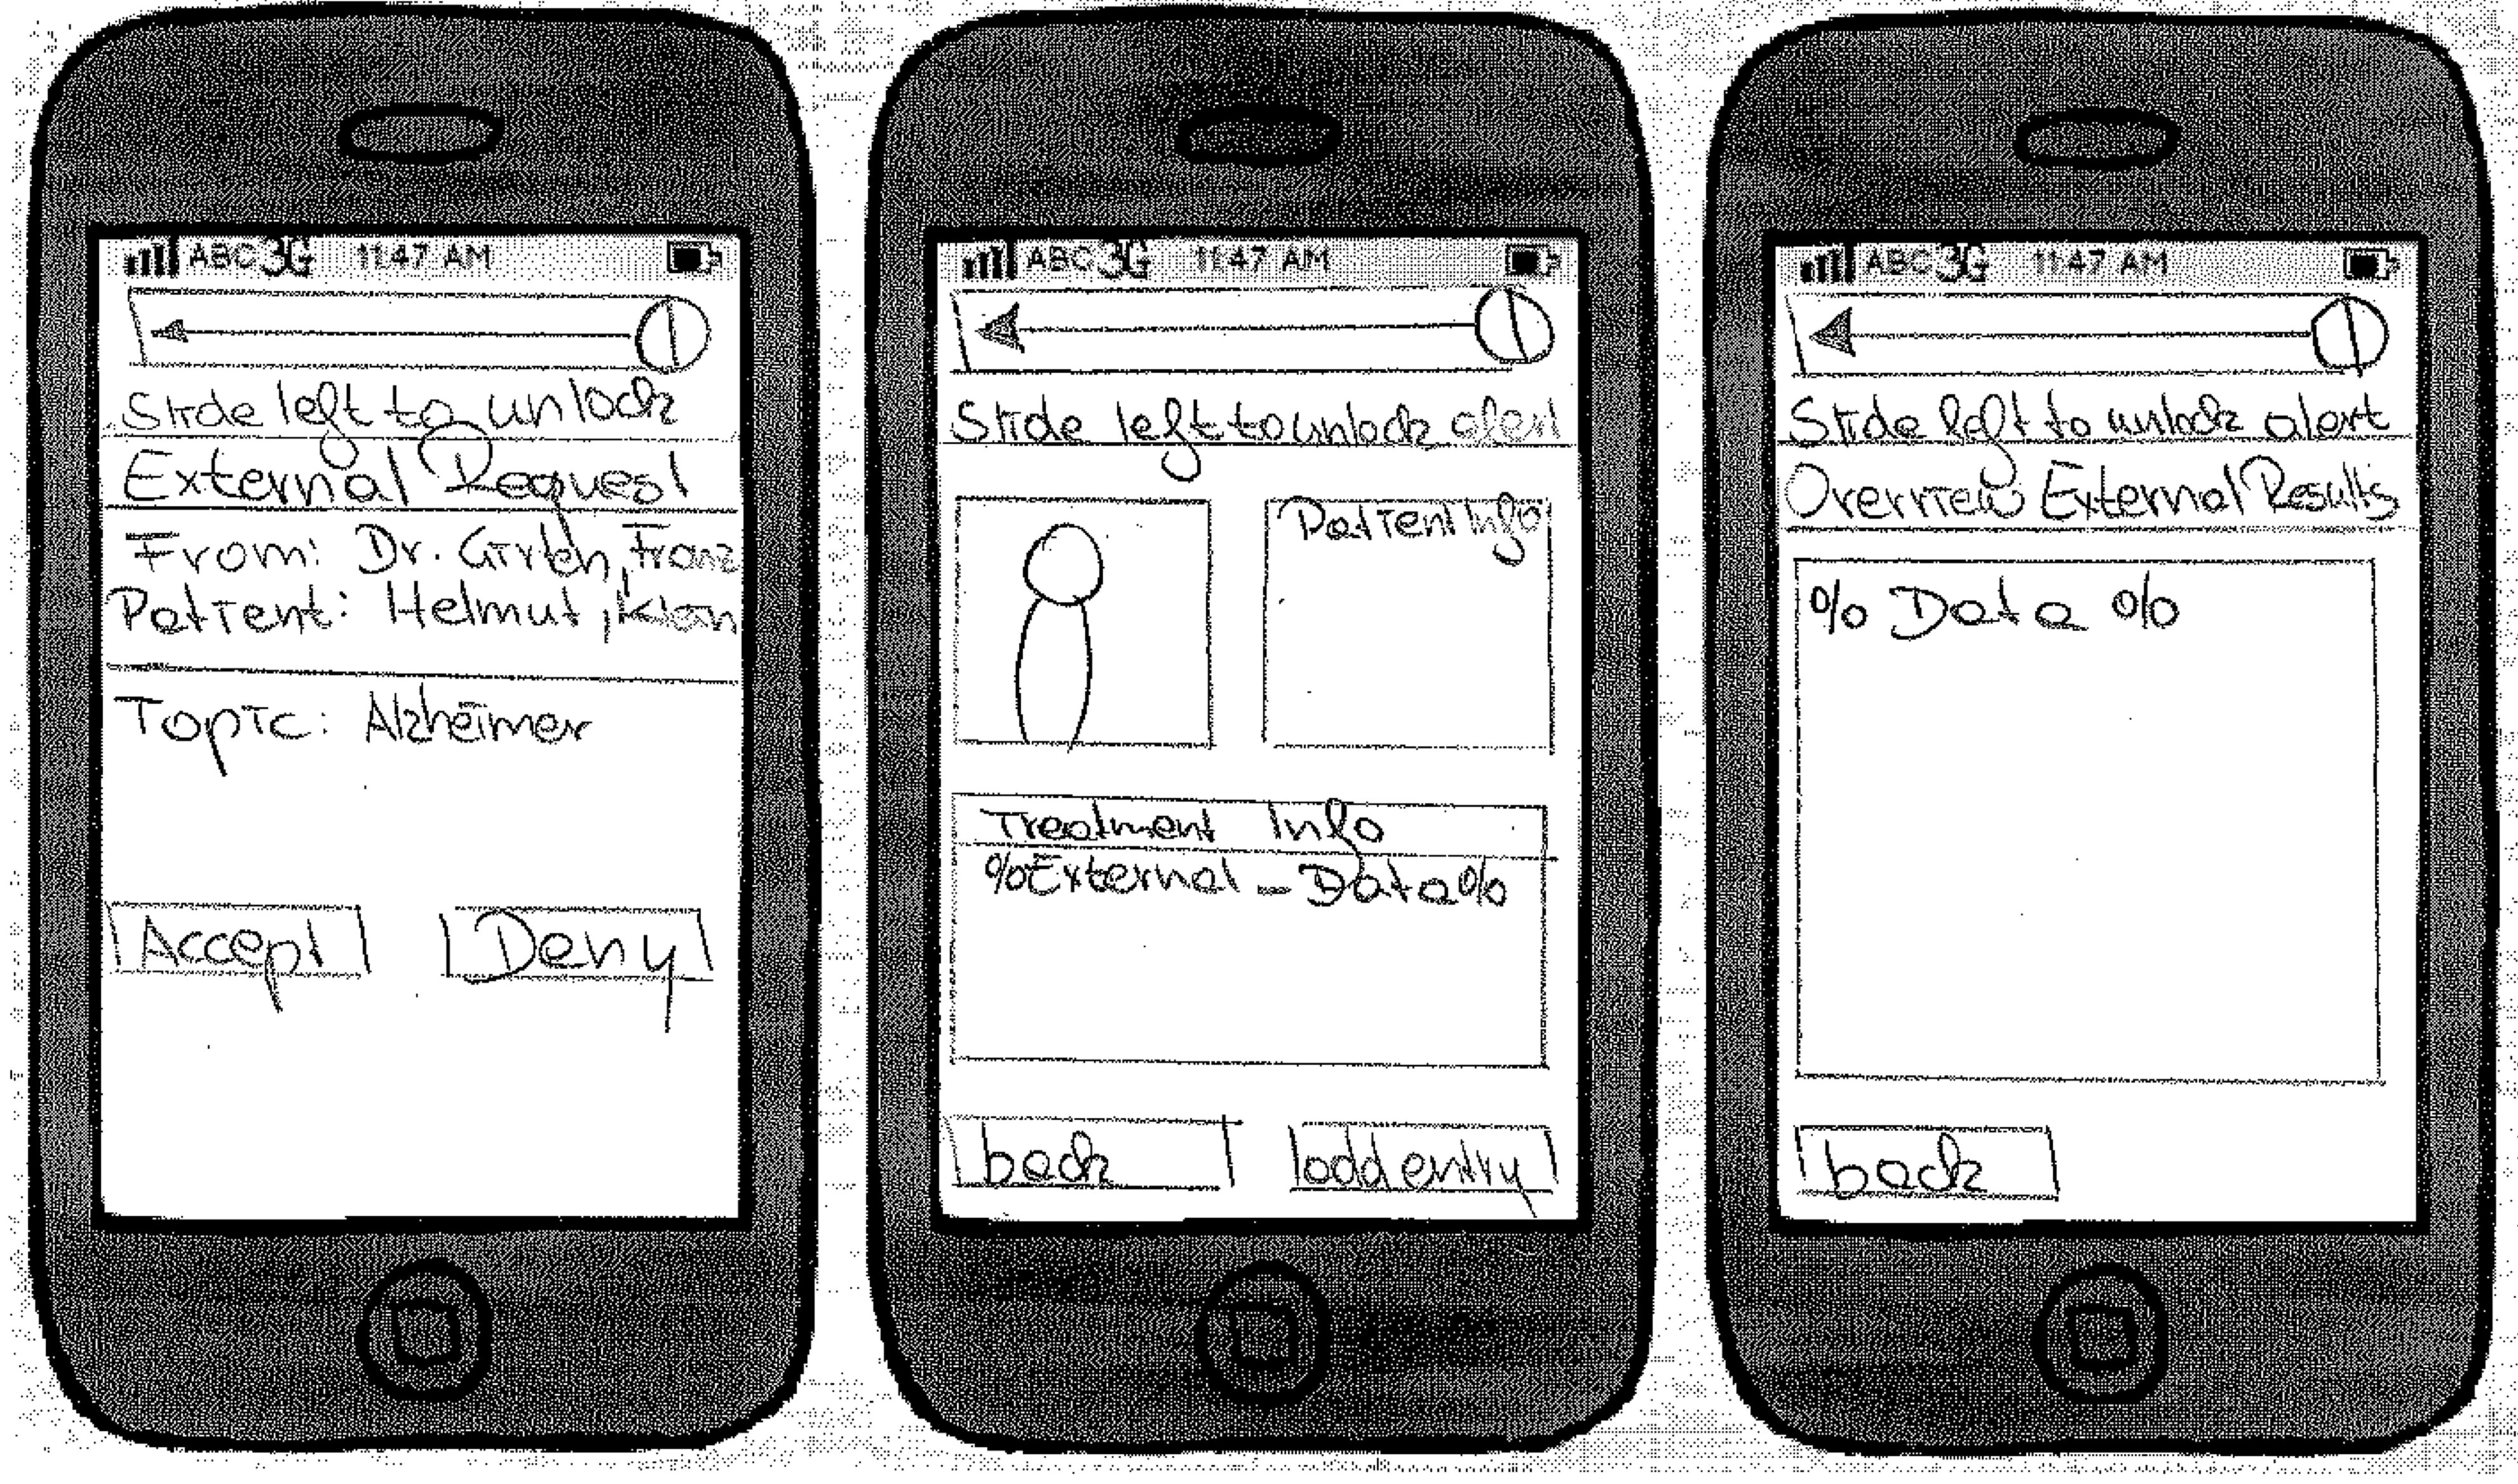 ABC 3G 11:47 AM
Slide left to unlock
External Request
From: Dr. Franz
Patient: Helmut,
Topic: Alzheimer
Accept Deny
ABC 3G 11:47 AM
Slide left to unlock alert
Patient Info
Treatment Info
%External_Data%
back add entry
ABC 3G 11:47 AM
Slide left to unlock alert
Overview External Results
% Data %
back